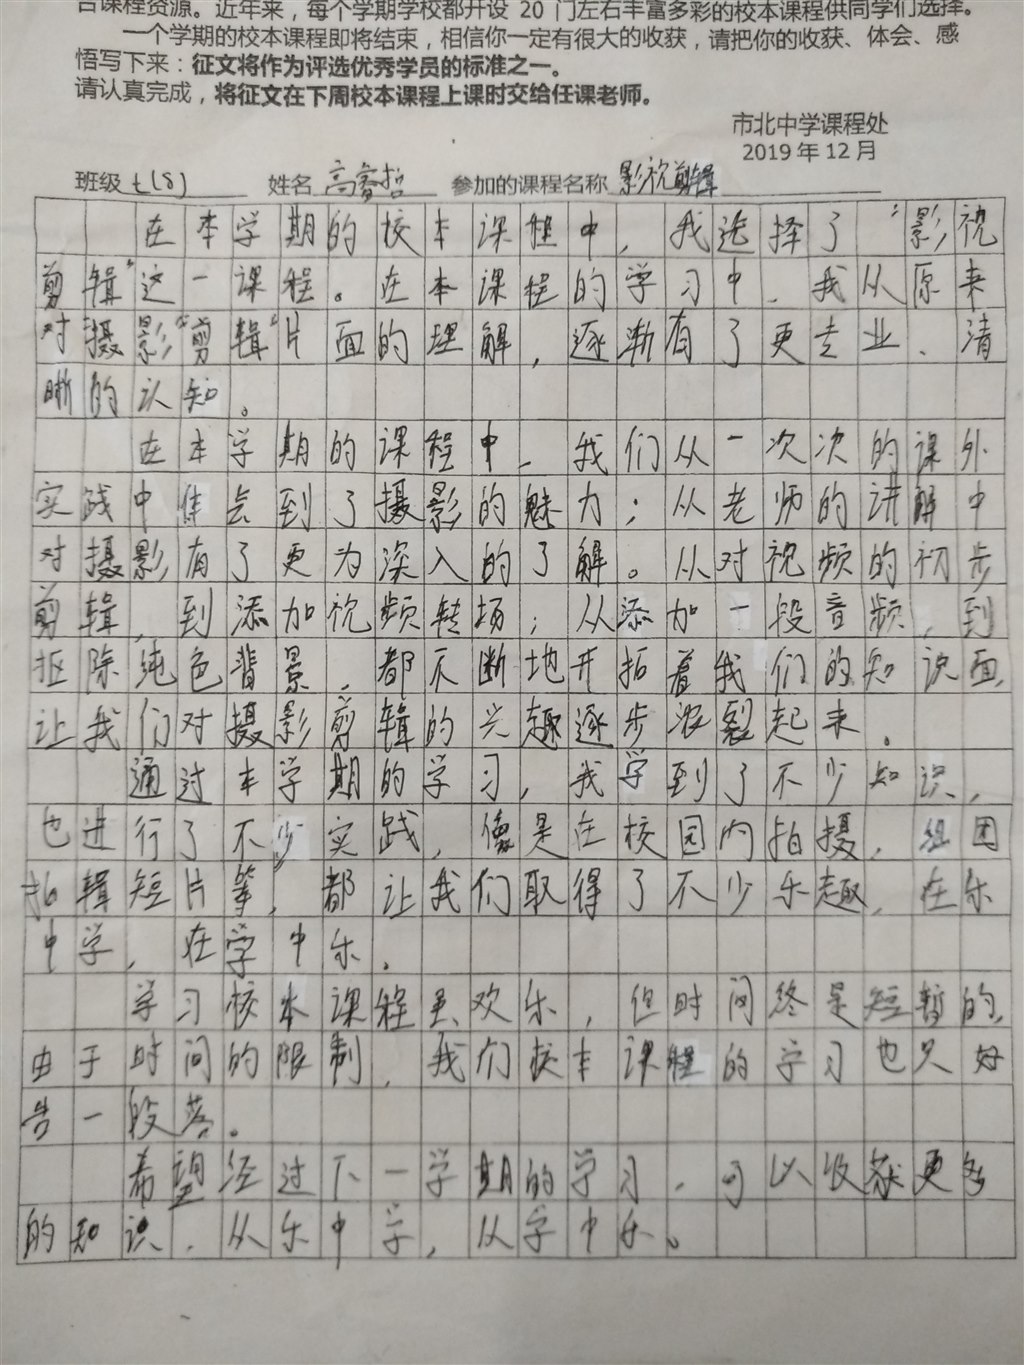 合课程资源。近年来，每个学期学校都开设 20 门左右丰富多彩的校本课程供同学们选择。
一个学期的校本课程即将结束，相信你一定有很大的收获，请把你的收获、体会、感
悟写下来：征文将作为评选优秀学员的标准之一。
请认真完成，将征文在下周校本课程上课时交给任课老师。
市北中学课程处
2019 年 12 月
班级 七(8) 姓名 高睿哲 参加的课程名称 影视剪辑
在本学期的校本课程中，我选择了“影视
剪辑”这一课程。在本课程的学习中，我从原来
对“摄影”“剪辑”片面的理解，逐渐有了更专业、清
晰的认知。
在本学期的课程中，我们从一次次的课外
实践中体会到了摄影的魅力；从老师的讲解中
对摄影有了更为深入的了解。从对视频的初步
剪辑，到添加视频转场；从添加一段音频，到
抠除纯色背景，都不断地开拓着我们的知识面，
让我们对摄影剪辑的兴趣逐步浓裂起来。
通过本学期的学习，我学到了不少知识，
也进行了不少实践，像是在校园内拍摄，组团
拍辑短片等，都让我们取得了不少乐趣，在乐
中学，在学中乐。
学习校本课程虽欢乐，但时间终是短暂的，
由于时间的限制，我们校本课程的学习也只好
告一段落。
希望经过下一学期的学习，可以收获更多
的知识，从乐中学，从学中乐。